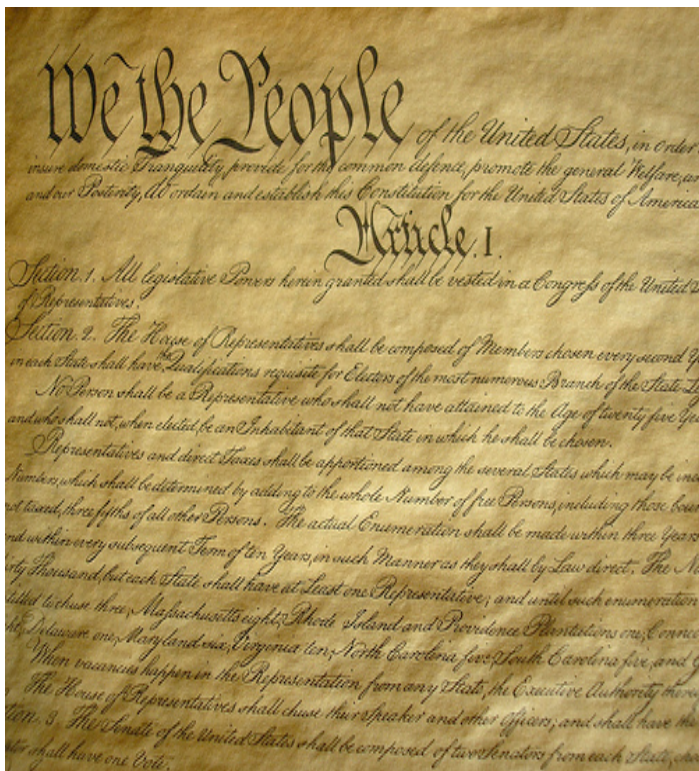 We the People of the United States, in order
insure domestic Tranquility, provide for the common defence, promote the general Welfare, an
and our Posterity, do ordain and establish this Constitution for the United States of America
Article. I.
Section. 1. All legislative Powers herein granted shall be vested in a Congress of the United
of Representatives.
Section. 2. The House of Representatives shall be composed of Members chosen every second Y
in each State shall have the Qualifications requisite for Electors of the most numerous Branch of the State
No Person shall be a Representative who shall not have attained to the Age of twenty five Yea
and who shall not, when elected, be an Inhabitant of that State in which he shall be chosen.
Representatives and direct Taxes shall be apportioned among the several States which may be inc
Numbers, which shall be determined by adding to the whole Number of free Persons, including those bou
not taxed, three fifths of all other Persons. The actual Enumeration shall be made within three Years
nd within every subsequent Term of ten Years, in such Manner as they shall by Law direct. The N
irty Thousand, but each State shall have at Least one Representative; and until such enumeration
titled to chuse three, Massachusetts eight, Rhode Island and Providence Plantations one, Connec
ht, Delaware one, Maryland six, Virginia ten, North Carolina five, South Carolina five, and
When vacancies happen in the Representation from any State, the Executive Authority there
The House of Representatives shall chuse their Speaker and other Officers; and shall have the
tion. 3. The Senate of the United States shall be composed of two Senators from each State, cho
ator shall have one Vote.